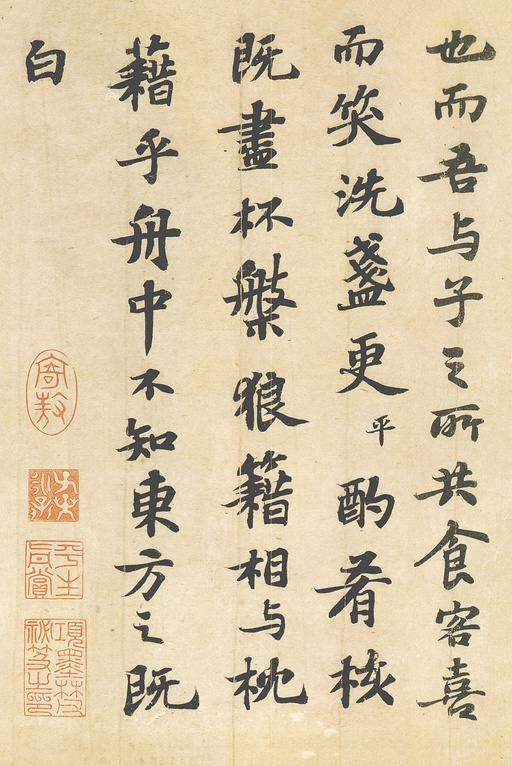 也而吾与子之所共食客喜
而笑洗盞更平酌肴核
既盡杯槃狼籍相与枕
藉乎舟中不知東方之既
白
平生
真賞
項墨林父
祕笈之印